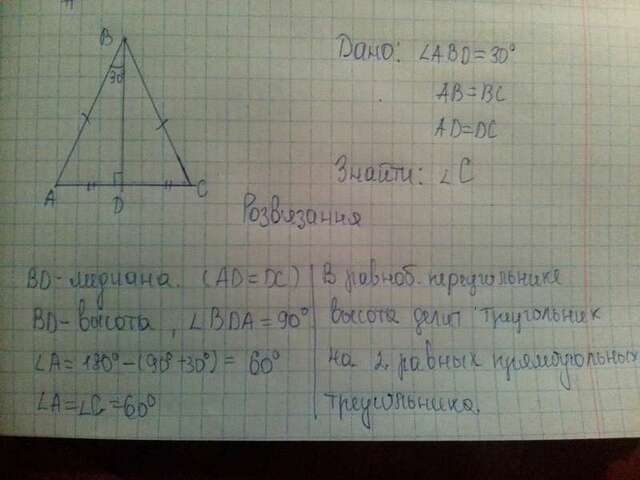 B
30
A
D
C
Дано: ∠ABD=30°
AB=BC
AD=DC
Знайти: ∠C
Розвязання
BD-медиана. (AD=DC)
BD-высота, ∠BDA=90°
∠A=180°-(90°+30°)= 60°
∠A=∠C=60°
В равноб. треугольнике
высота делит треугольник
на 2 равных прямоугольных
треугольника.